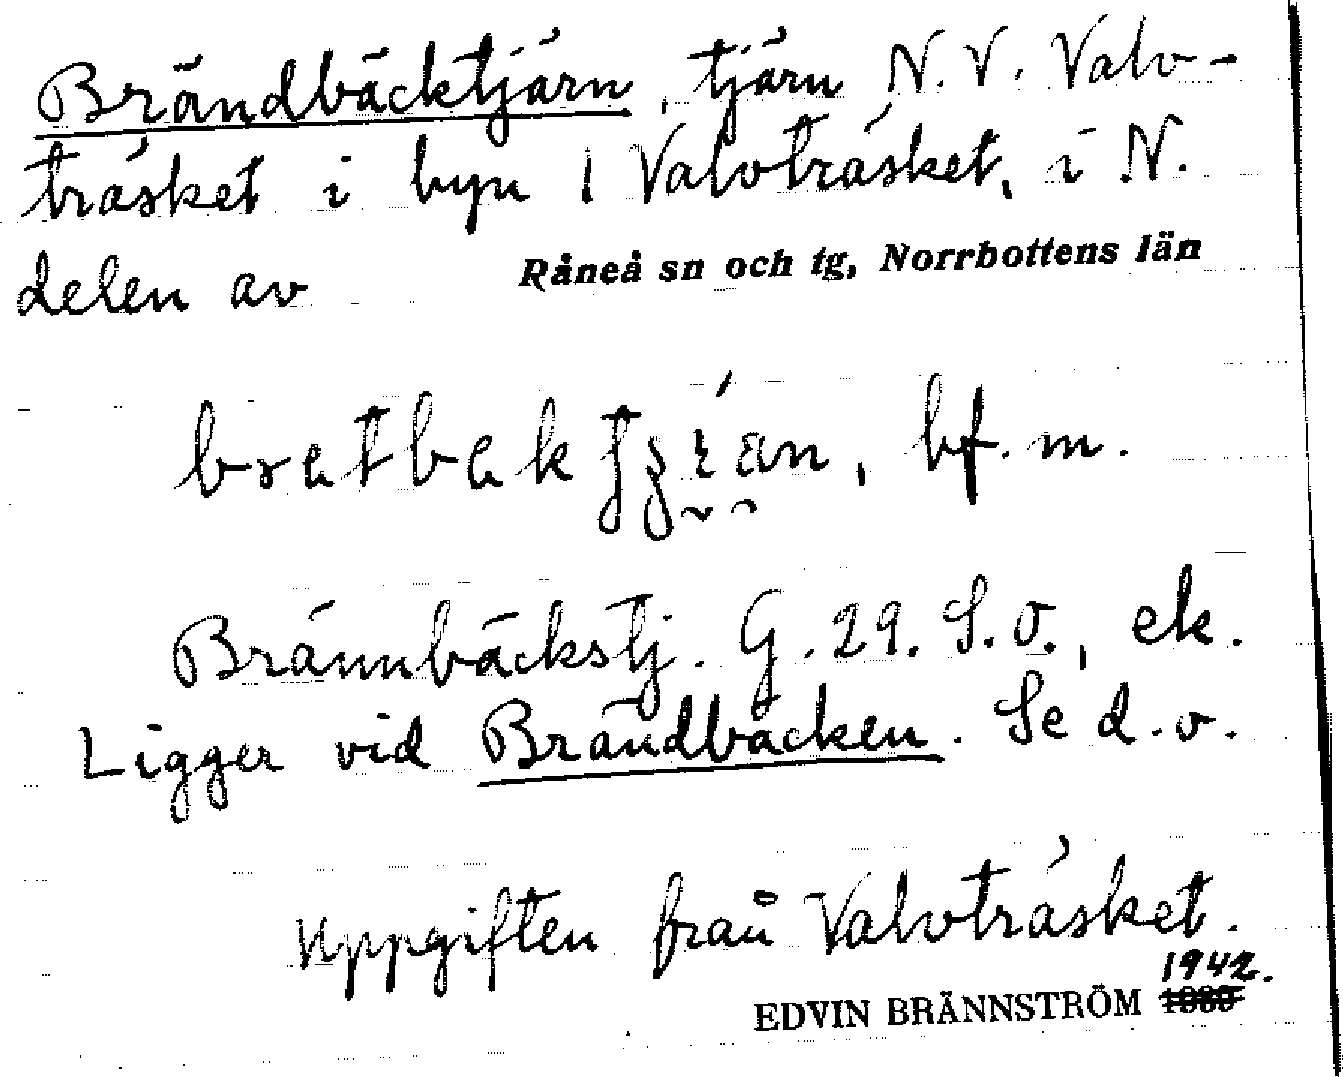 Brändbäcktjärn, tjärn N.V. Valv-
träsket i byn 1 Valvträsket, i N.
delen av Råneå sn och tg, Norrbottens län
bf. m.
Brännbäckstj. G. 29. S.O., ek.
Ligger vid Brändbäcken. Se d.o.
Uppgiften från Valvträsket.
1942.
EDVIN BRÄNNSTRÖM